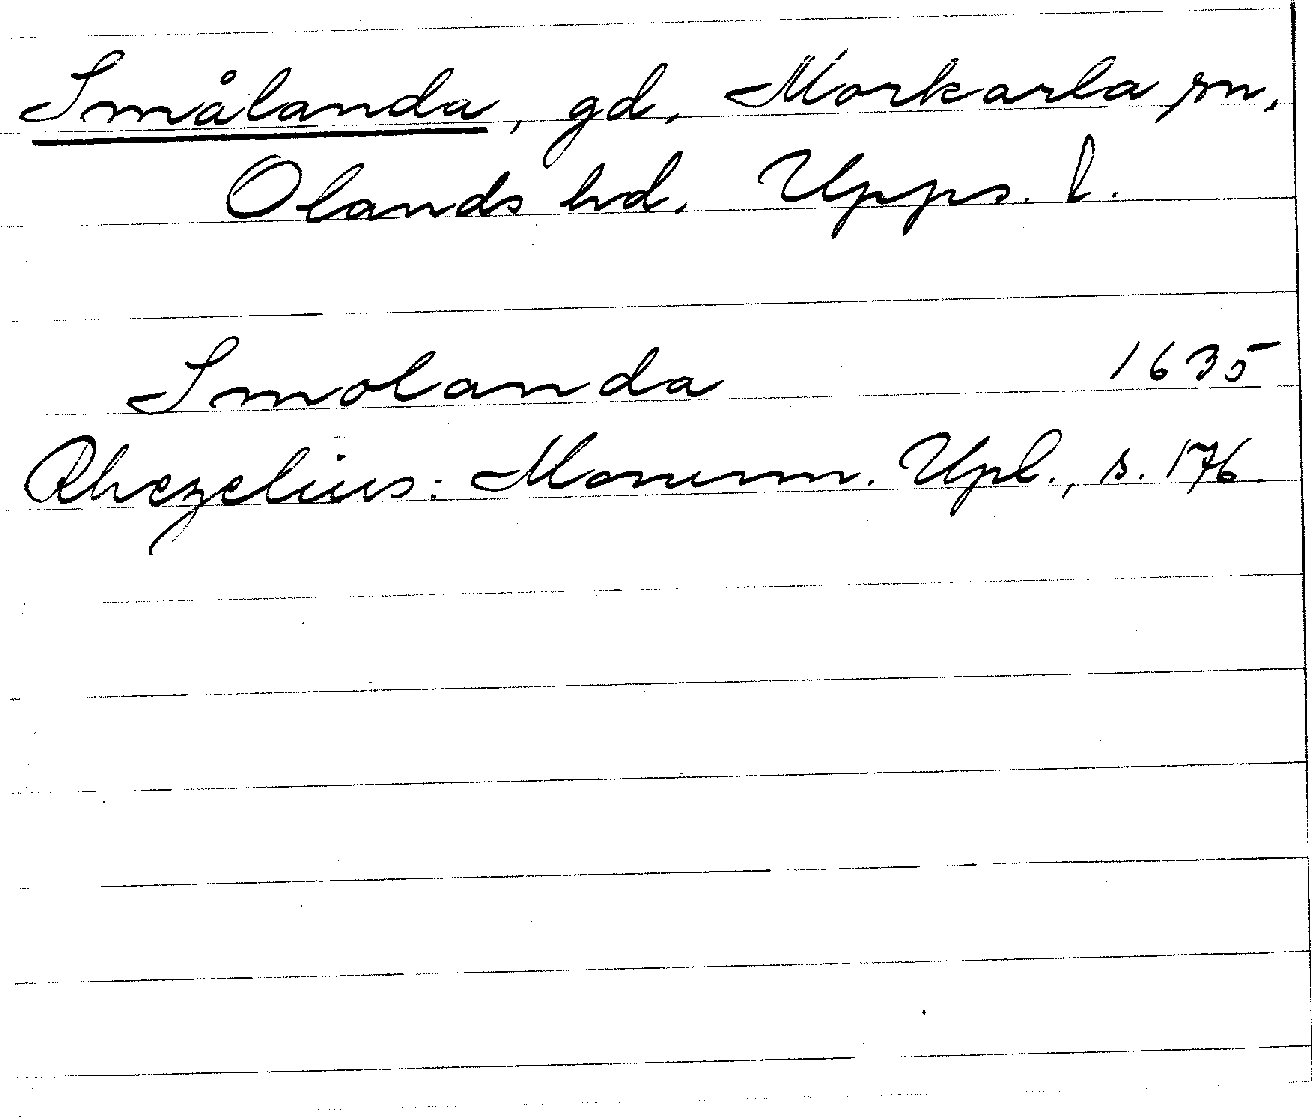 Smålanda, gd, Morkarla sn,
Olands hd, Upps. l.
Smolanda 1635
Rhezelius: Monum. Upl., s. 176.